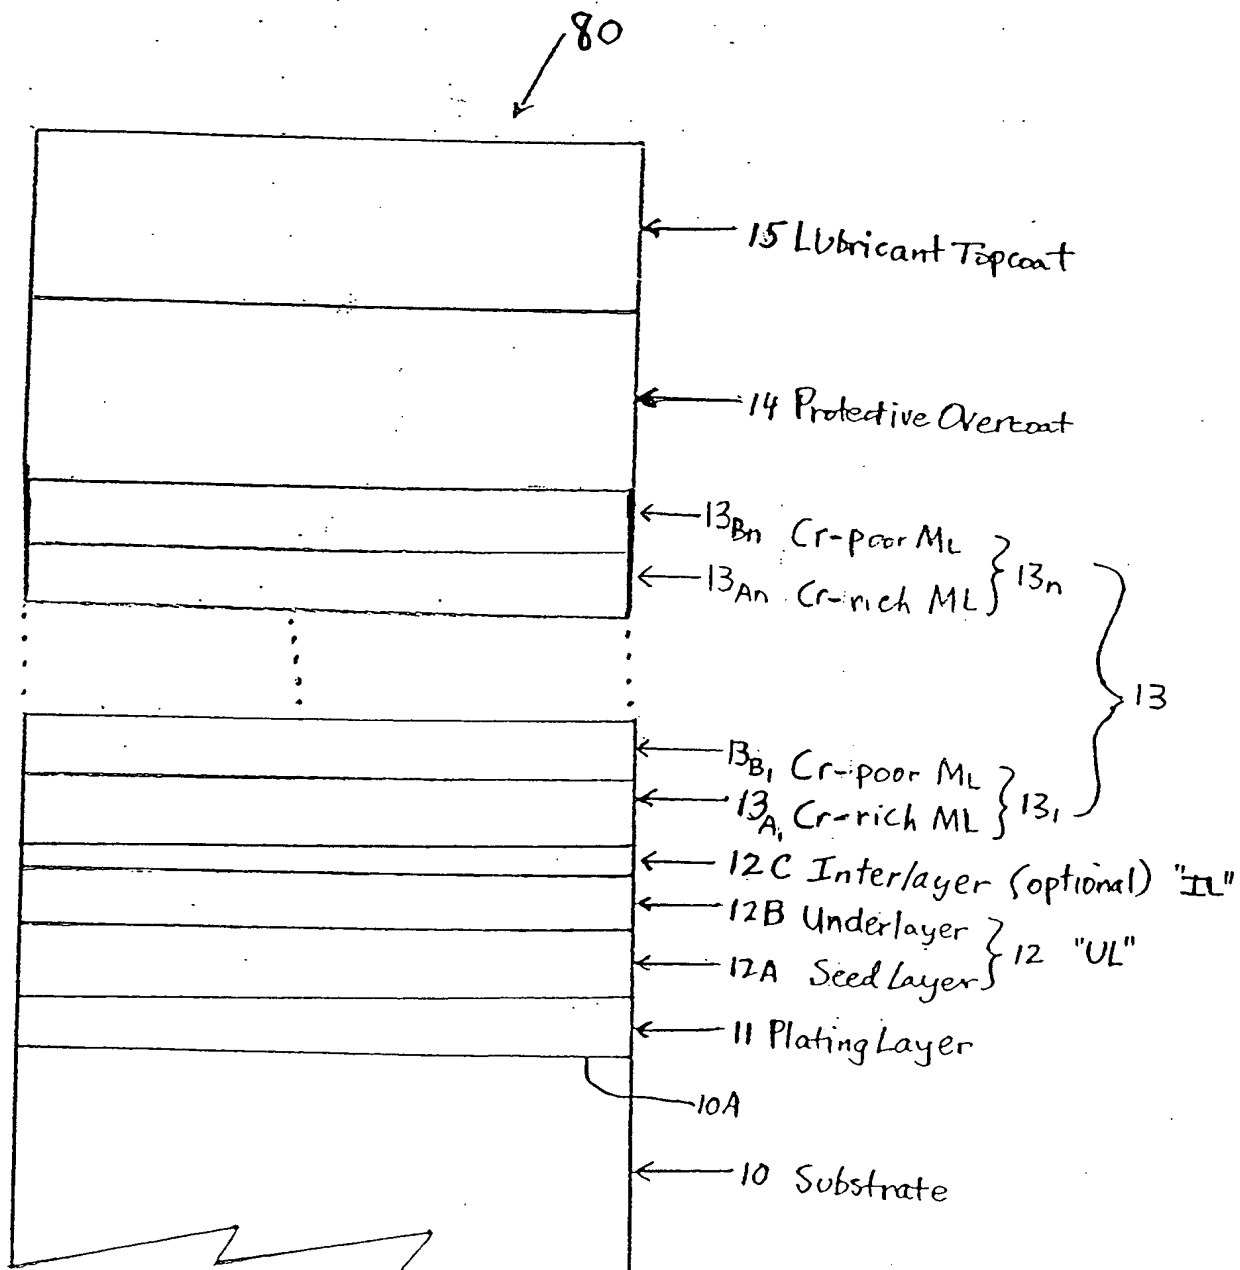 80
15 Lubricant Topcoat
14 Protective Overcoat
13Bn Cr-poor ML
13An Cr-rich ML } 13n
13
13B1 Cr-poor ML
13A1 Cr-rich ML } 131
12C Interlayer (optional) "IL"
12B Underlayer
12A Seed Layer } 12 "UL"
11 Plating Layer
10A
10 Substrate